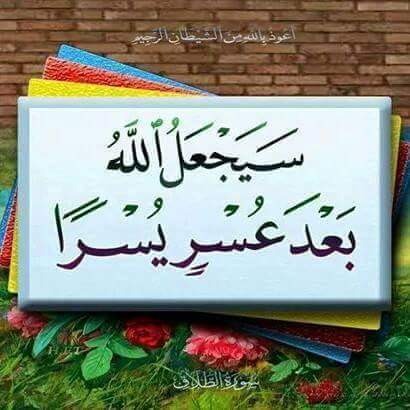 أعوذ بالله من الشيطان الرجيم
سَيَجْعَلُ ٱللَّهُ
بَعْدَ عُسْرٍ يُسْرًا
سورة الطلاق